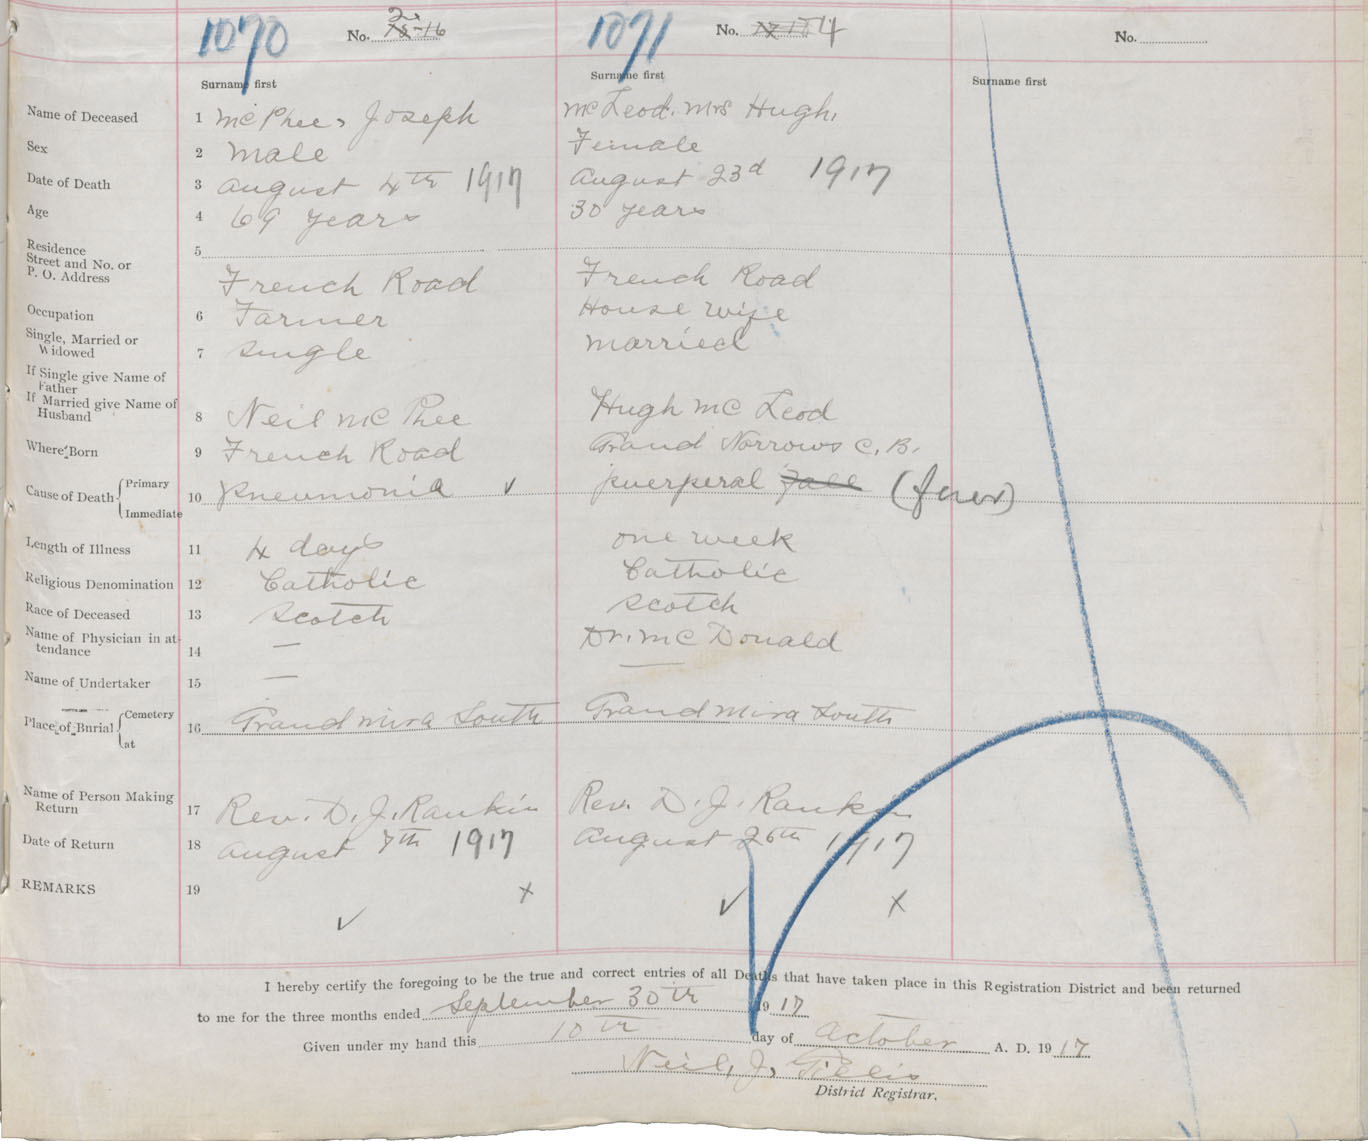 1070 No. 2 16 1071 No. 4 No.
Surname first Surname first Surname first
Name of Deceased 1 McPhee, Joseph McLeod. Mrs Hugh.
Sex 2 Male Female
Date of Death 3 August 4th 1917 August 23d 1917
Age 4 69 years 30 years
Residence
Street and No. or
P. O. Address 5 French Road French Road
Occupation 6 Farmer House wife
Single, Married or
Widowed 7 Single Married
If Single give Name of
Father
If Married give Name of
Husband 8 Neil McPhee Hugh McLeod
Where Born 9 French Road Grand Narrows C. B.
Cause of Death { Primary
Immediate 10 Pneumonia ✓ puerperal (fever)
Length of Illness 11 4 days one week
Religious Denomination 12 Catholic Catholic
Race of Deceased 13 Scotch Scotch
Name of Physician in at-
tendance 14 — Dr. McDonald
Name of Undertaker 15 — —
Place of Burial { Cemetery
at 16 Grand Mira South Grand Mira South
Name of Person Making
Return 17 Rev. D. J. Rankin Rev. D. J. Rankin
Date of Return 18 August 7th 1917 August 26th 1917
REMARKS 19 ✓ x ✓ x
I hereby certify the foregoing to be the true and correct entries of all Deaths that have taken place in this Registration District and been returned
to me for the three months ended September 30th 1917
Given under my hand this 10th day of October A. D. 1917
Neil, J, Gillis
District Registrar.